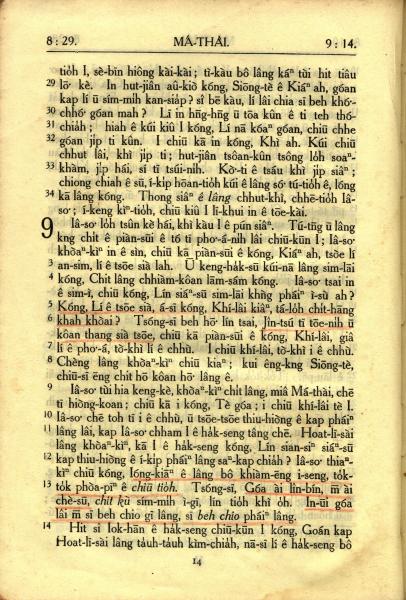 8 : 29. MÁ-THÀI. 9 : 14.
tio̍h I, sè-bīn hiông kài-kài; tì-kàu bô lâng káⁿ tùi hit tiâu
29 lō͘ kè. In hut-jiân aû-kiò kóng, Siōng-tè ê Kiáⁿ ah, goán
kap lí ū sím-mi̍h kan-sia̍p? sî bē kàu, lí lâi chia sī beh khó͘-
30 chhó͘ goán mah? Lī in hn̄g-hn̄g ū tōa kûn ê ti teh thó-
31 chia̍h; hiah ê kúi kiû I kóng, Lí nā kóaⁿ goán, chiū chhe
32 goán ji̍p ti kûn. I chiū kā in kóng, Khì ah. Kúi chiū
chhut lâi, khì ji̍p ti; hut-jiân tsôan-kûn tsông lo̍h soaⁿ-
33 khàm, ji̍p hái, sí tī tsúi-nih. Kò͘-ti ê tsáu khì ji̍p siâⁿ;
chiong chiah ê sū, í-ki̍p hōan-tio̍h kúi ê lâng só͘ tú-tio̍h ê, lóng
34 kā lâng kóng. Thong siâⁿ ê lâng chhut-khì, chhē-tio̍h Iâ-
so͘; í-keng kìⁿ-tio̍h, chiū kiû I lī-khui in ê tōe-kài.
9 Iâ-so͘ lo̍h tsûn kè hái, khì kàu I ê pún siâⁿ. Tú-tn̄g ū lâng
kng chi̍t ê piàn-sūi ê tó tī pho͘-á-nih lâi chiū-kūn I; Iâ-so͘
khòaⁿ-kìⁿ in ê sìn, chiū kā piàn-sūi ê kóng, Kiáⁿ ah, tsòe lí
3 an-sim, lí ê tsōe sià lah. Ū keng-ha̍k-sū kúi-nā lâng sim-lāi
4 kóng, Chit lâng chhiàm-kôan lām-sám kóng. Iâ-so͘ tsai in
ê sim-ì, chiū kóng, Lín siáⁿ-sū sim-lāi khǹg pháiⁿ ì-sù ah?
5 Kóng, Lí ê tsōe sià, á-sī kóng, Khí-lâi kiâⁿ, tá-lo̍h chi̍t-hāng
6 khah khòai? Tsóng-sī beh hō͘ lín tsai, Jîn-tsú tī tōe-nih ū
kôan thang sià tsōe, chiū kā piàn-sūi ê kóng, Khí-lâi, giâ
7 lí ê pho͘-á, tò-khì lí ê chhù. I chiū khí-lâi, tò-khì i ê chhù.
8 Chèng lâng khòaⁿ-kìⁿ chiū kiaⁿ; kui êng-kng Siōng-tè,
chiū-sī èng chit hō kôan hō͘ lâng ê.
9 Iâ-so͘ tùi hia keng-kè, khòaⁿ-kìⁿ chi̍t lâng, miâ Má-thài, chē
tī hiòng-koan; chiū kā i kóng, Tè góa; i chiū khí-lâi tè I.
10 Iâ-so͘ chē toh tī i ê chhù, ū tsōe-tsōe thiu-hiòng ê kap pháiⁿ
11 lâng lâi, kap Iâ-so͘ chham I ê ha̍k-seng tâng chē. Hoat-lī-sài
lâng khòaⁿ-kìⁿ, kā I ê ha̍k-seng kóng, Lín sian-siⁿ siáⁿ-sū
12 kap thiu-hiòng ê í-ki̍p pháiⁿ lâng saⁿ-kap chia̍h? Iâ-so͘ thiaⁿ-
kìⁿ chiū kóng, ióng-kiāⁿ ê lâng bô khiàm-ēng i-seng, to̍k-
13 to̍k phòa-pīⁿ ê chiū tio̍h. Tsóng-sī, Góa ài lîn-bín, m̄ ài
chè-sū, chit kù sím-mi̍h ì-gī, lín tio̍h khì o̍h. In-ūi góa
lâi m̄ sī beh chio gī lâng, sī beh chio pháiⁿ lâng.
14 Hit sî Iok-hān ê ha̍k-seng chiū-kūn I kóng, Goán kap
Hoat-lī-sài lâng ta̍uh-ta̍uh kìm-chia̍h, nā-sī lí ê ha̍k-seng bô
14